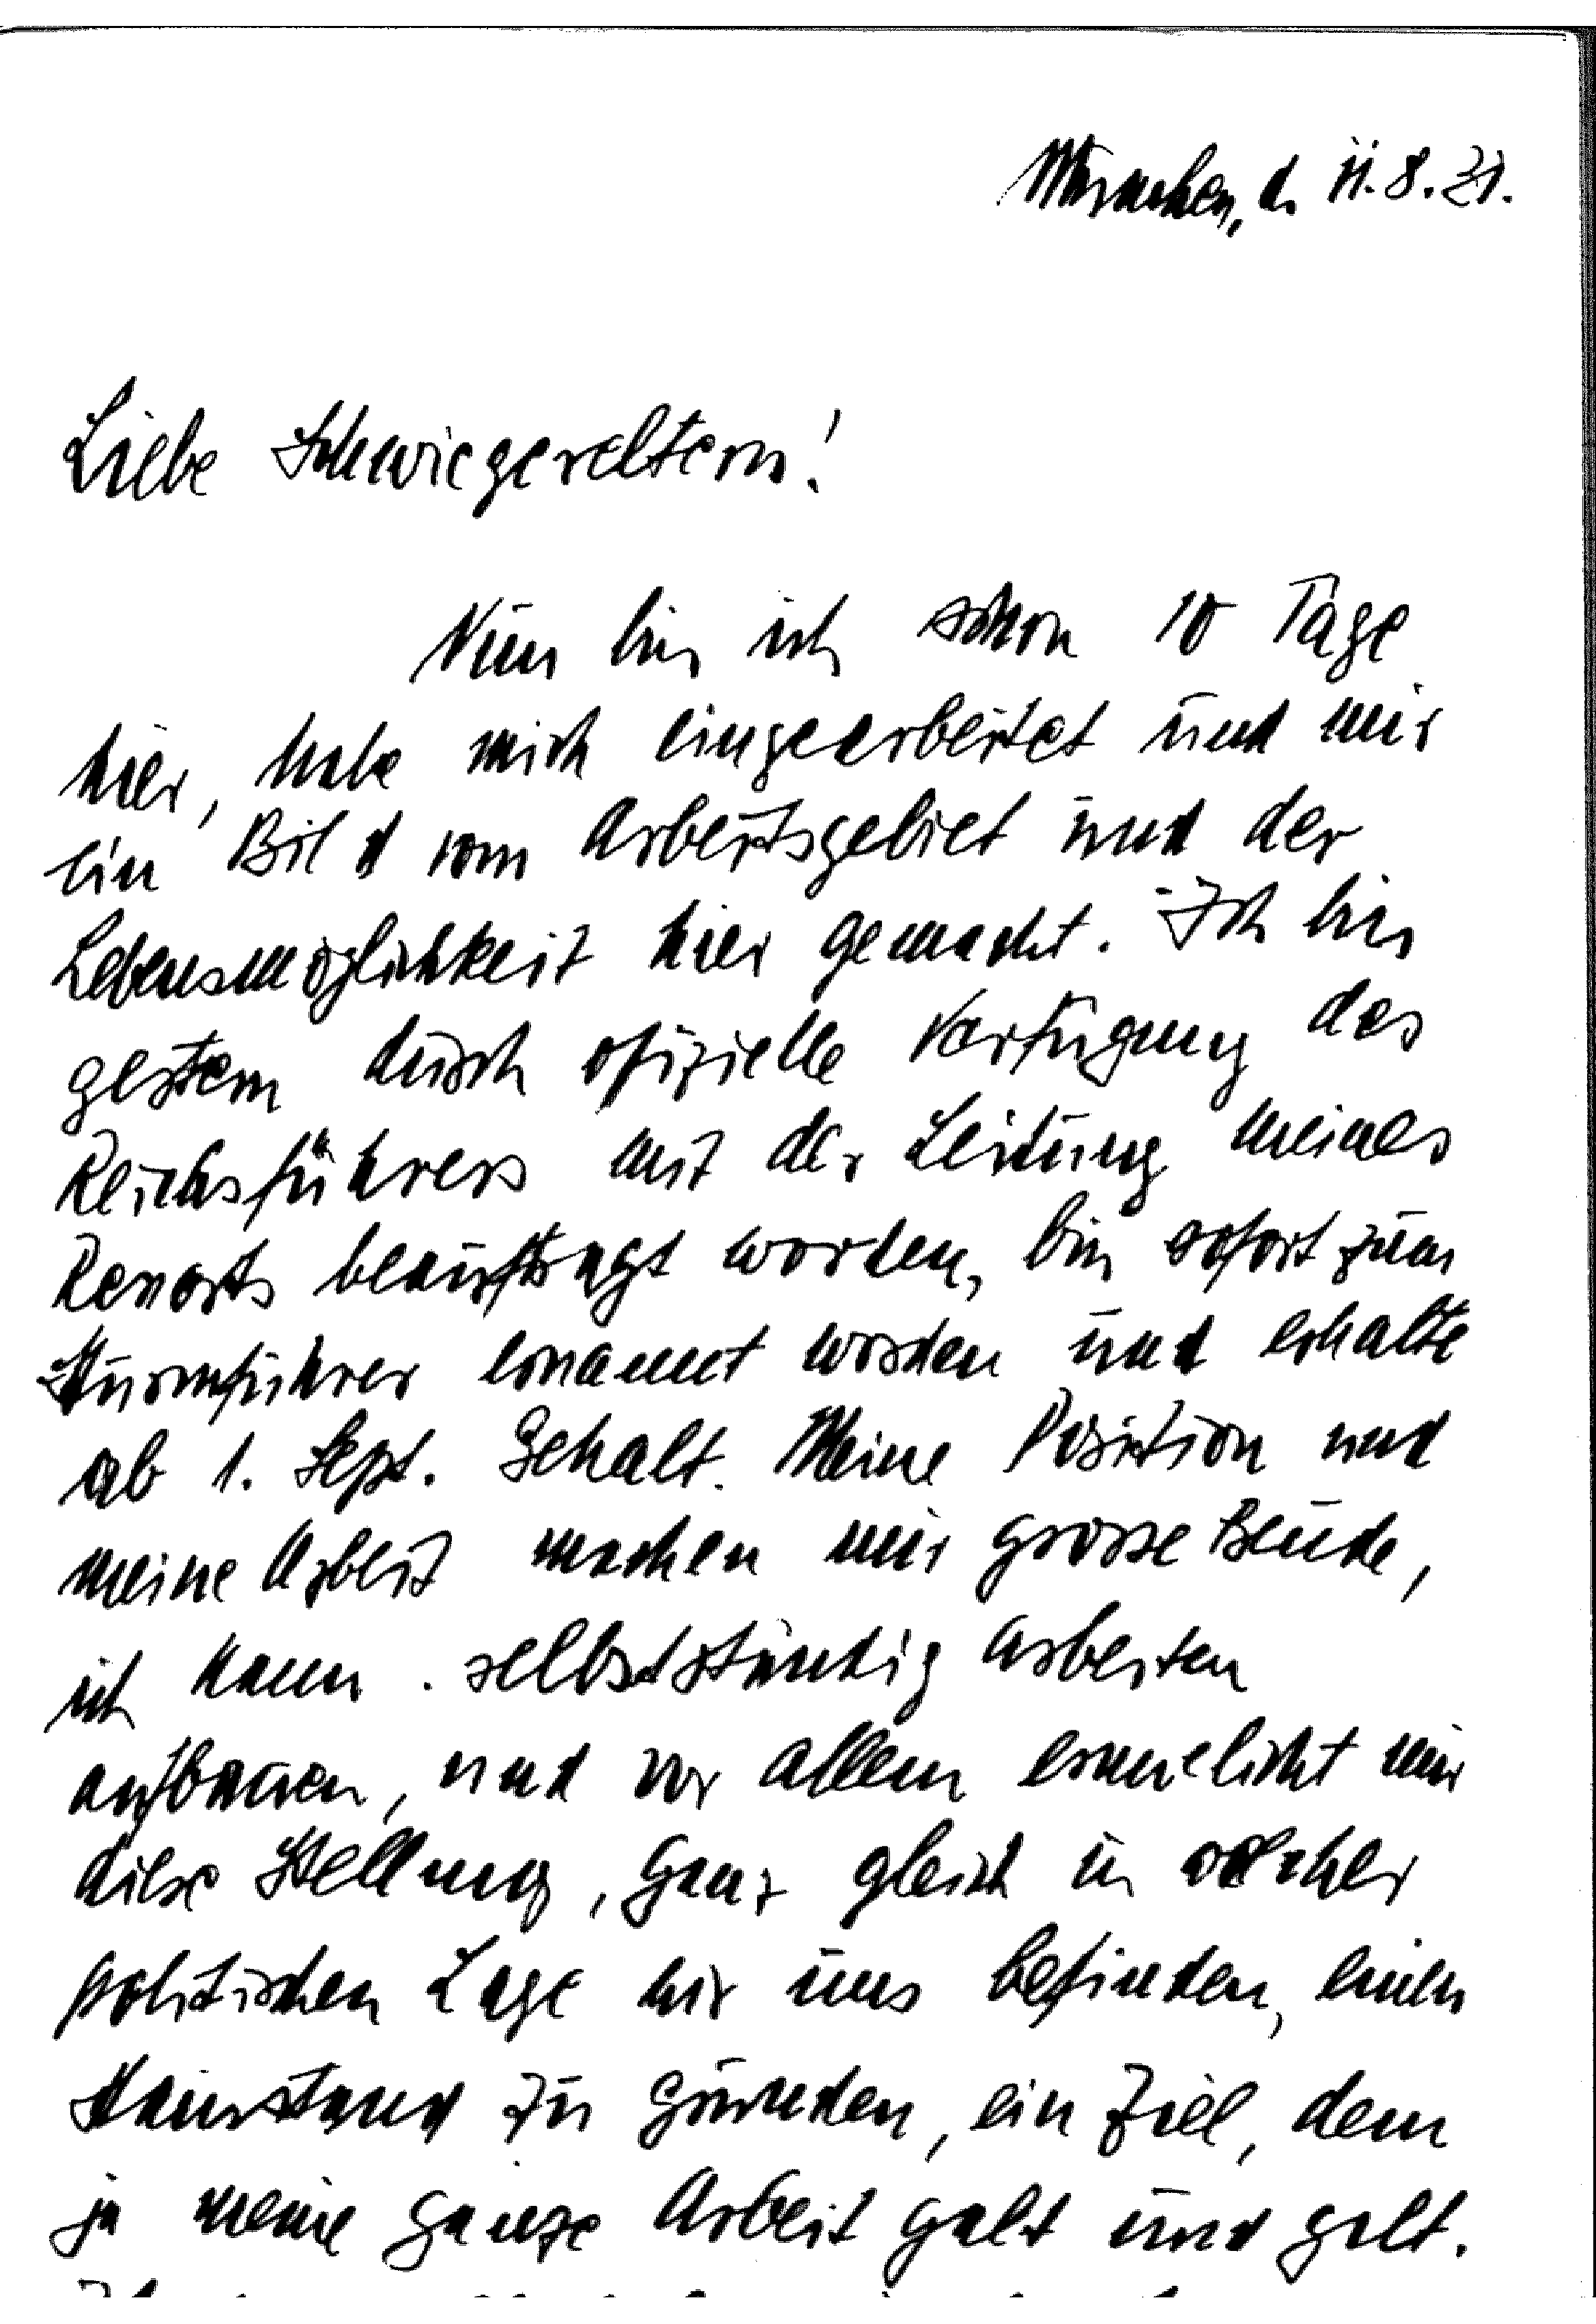 München, d. 11.8.31.
Liebe Schwiegereltern!
Nun bin ich schon 10 Tage
hier, habe mich eingearbeitet und mir
ein Bild vom Arbeitsgebiet und der
Lebensmöglichkeit hier gemacht. Ich bin
gestern durch ofizielle Verfügung des
Reichsführers mit der Leitung meines
beauftragt worden, bin sofort zum
Sturmführer ernannt worden und erhalte
ab 1. Sept. Gehalt. Meine Position und
meine Arbeit machen mir grosse Freude,
ich kann selbstständig arbeiten
aufbauen, und vor allem mir
diese Stellung, ganz gleich in welcher
politischen Lage wir uns befinden, einen
Hausstand zu gründen, ein Ziel, dem
ja meine ganze Arbeit galt und galt.